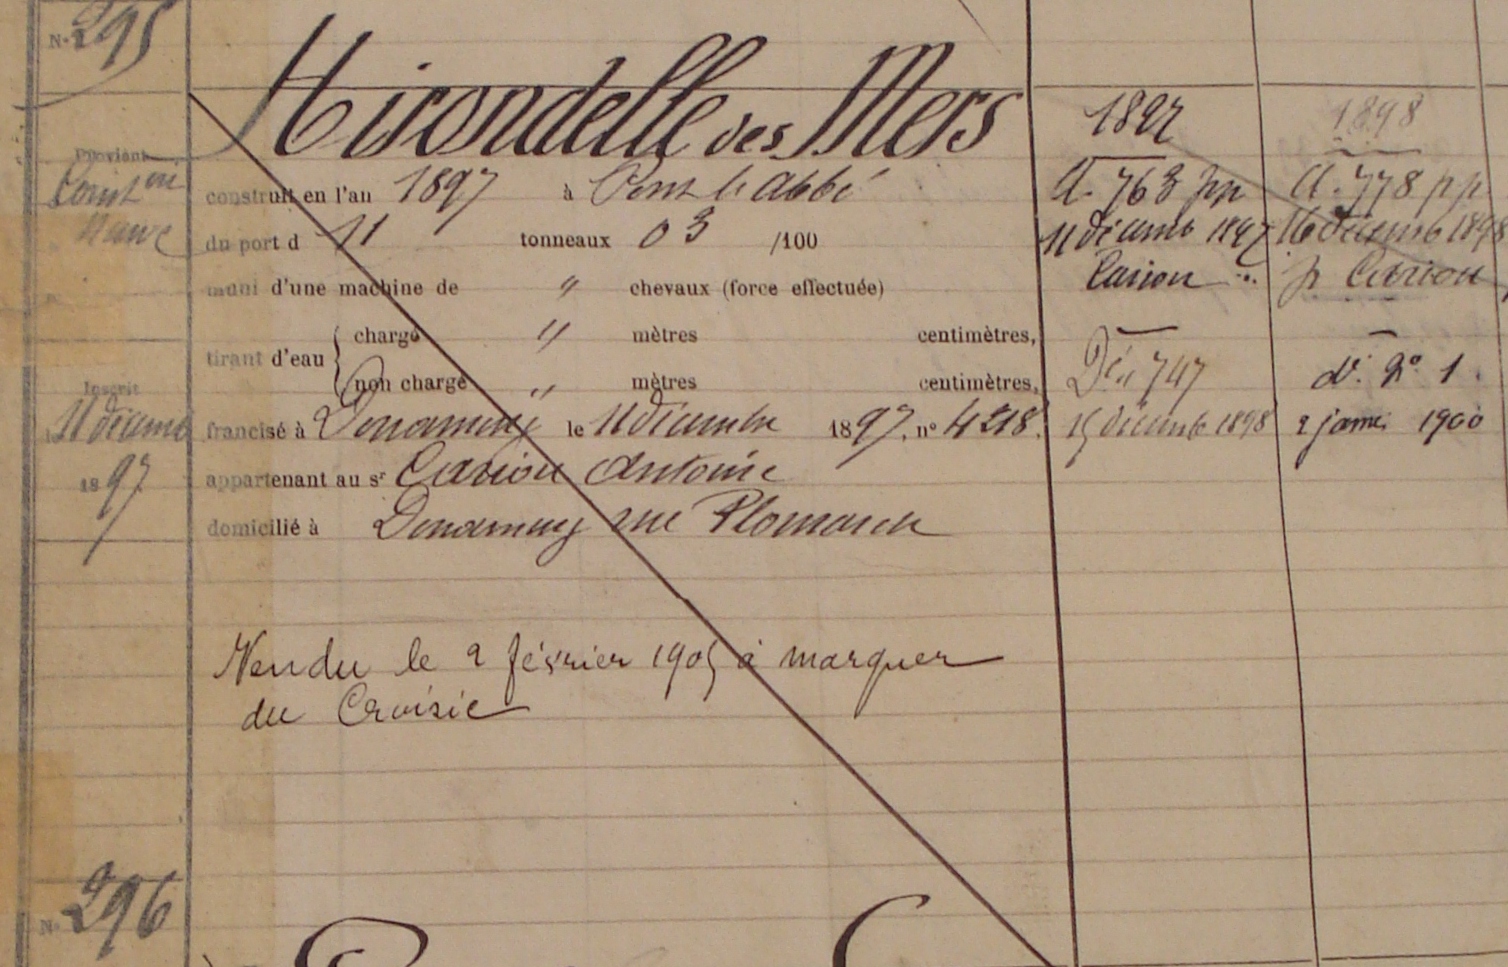 N° 295
Hirondelle des Mers
Provient
Const on
Neuve
construit en l'an 1897 à Pont l'abbé
du port d 11 tonneaux 03 /100
muni d'une machine de " chevaux (force effectuée)
tirant d'eau
chargé " mètres centimètres,
non chargé " mètres centimètres,
Inscrit
11 décemb
1897
francisé à Douarnenez le 11 décembre 1897. n° 4218.
appartenant au sr Cariou Antoine
domicilié à Douarnenez rue Plomarch
Vendu le 2 février 1905 à marquer
du Croisic
1897
A. 763 pp
11 décemb 1897
Cariou
747
15 décemb 1898
1898
A. 778 pp
16 décemb 1898
p Cariou
d. n° 1.
2 janv. 1900
N° 296